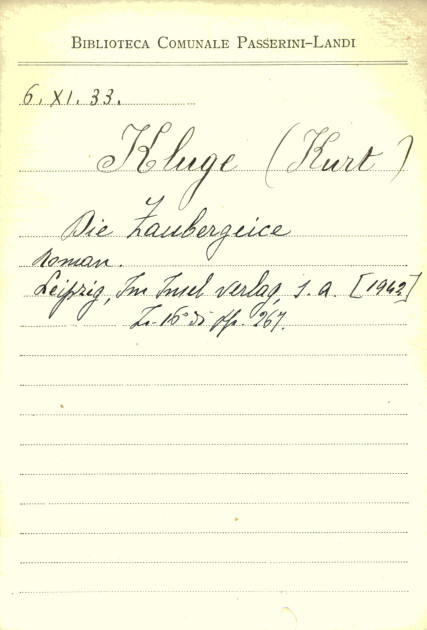 BIBLIOTECA COMUNALE PASSERINI-LANDI
6. XI. 33.
Kluge (Kurt)
Die Zaubergeice
Roman.
Leipzig, Im Insel Verlag, s. a. [1942]
16° di pp. 267.